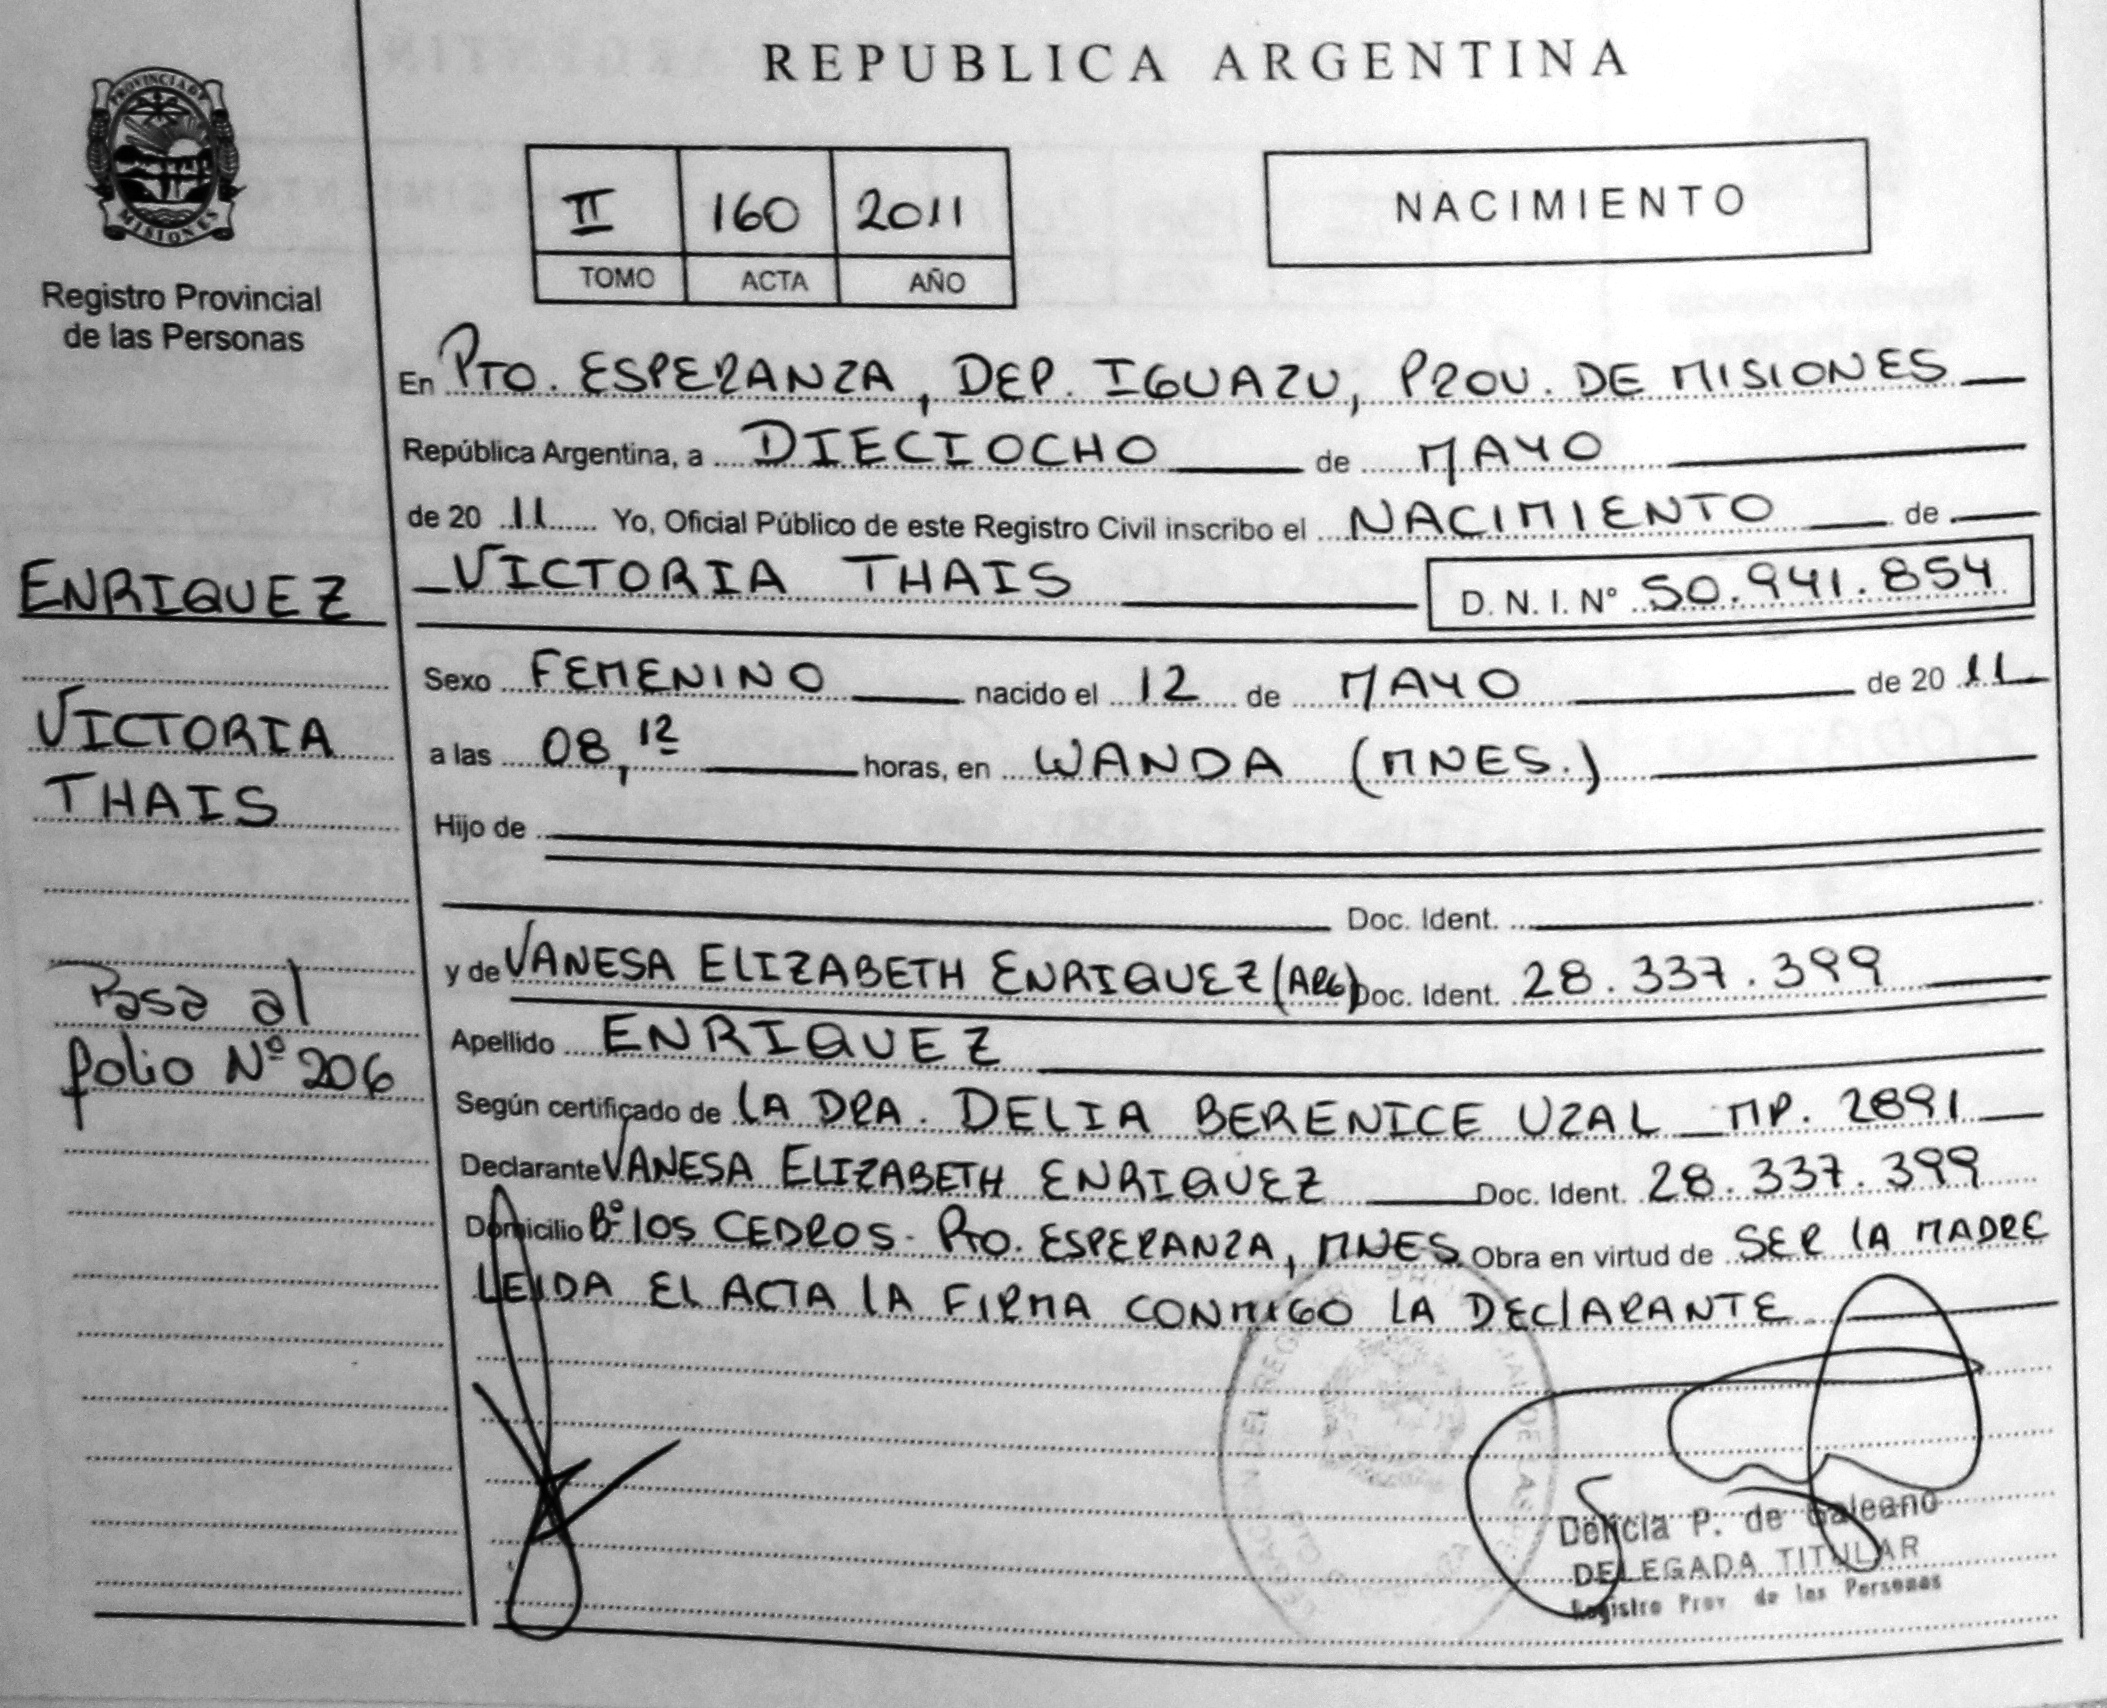 REPUBLICA ARGENTINA
PROVINCIA DE
MISIONES
Registro Provincial
de las Personas
II 160 2011
TOMO ACTA AÑO
NACIMIENTO
En PTO. ESPERANZA, DEP. IGUAZU, PROV. DE MISIONES
República Argentina, a DIECIOCHO de MAYO
de 20 11 Yo, Oficial Público de este Registro Civil inscribo el NACIMIENTO de
VICTORIA THAIS D. N. I. Nº 50.941.854
Sexo FEMENINO nacido el 12 de MAYO de 20 11
a las 08,12 horas, en WANDA (MNES.)
Hijo de
Doc. Ident.
y de VANESA ELIZABETH ENRIQUEZ (ARG) Doc. Ident. 28.337.399
Apellido ENRIQUEZ
Según certificado de LA DRA. DELIA BERENICE UZAL MP. 2891
Declarante VANESA ELIZABETH ENRIQUEZ Doc. Ident. 28.337.399
Domicilio Bº LOS CEDROS - PTO. ESPERANZA, MNES. Obra en virtud de SER LA MADRE
LEIDA EL ACTA LA FIRMA CONMIGO LA DECLARANTE
Delicia P. de Galeano
DELEGADA TITULAR
Registro Prov. de las Personas
ENRIQUEZ
VICTORIA
THAIS
Pasa al
folio Nº 206